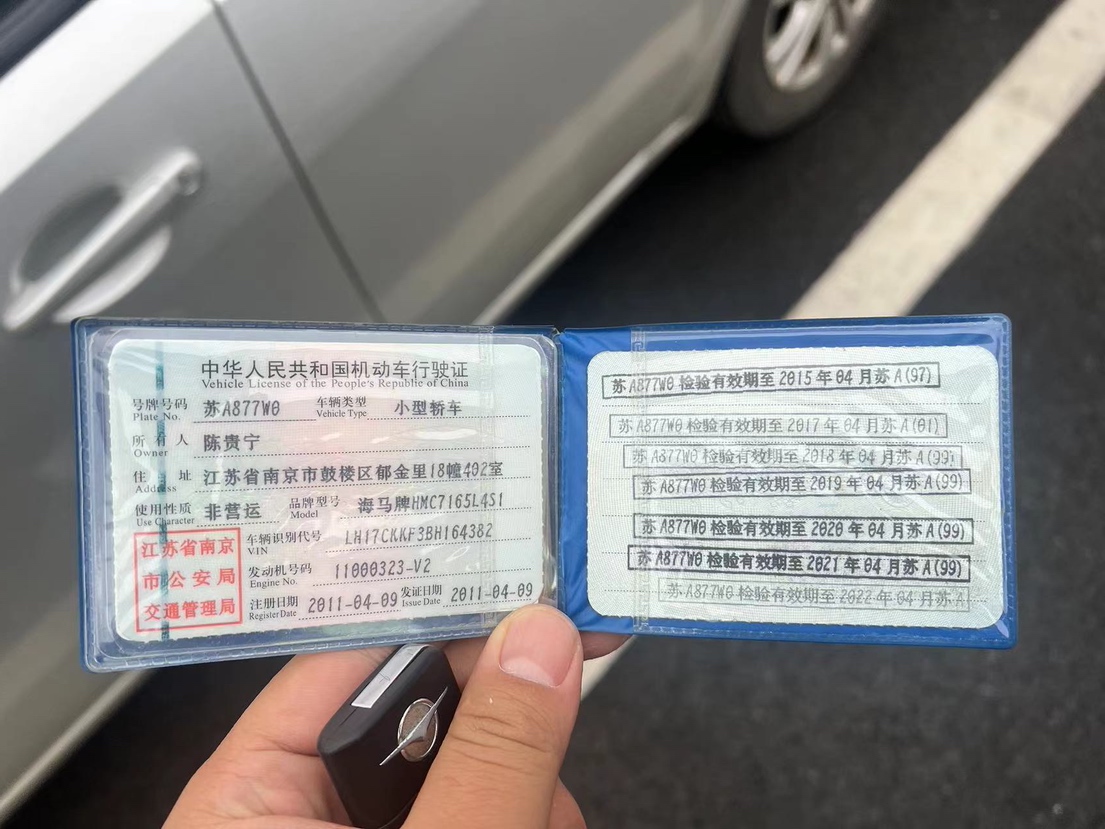 中华人民共和国机动车行驶证
Vehicle License of the People's Republic of China
号牌号码 苏A877W0 车辆类型 小型轿车
Plate No. Vehicle Type
所有人 陈贵宁
Owner
住址 江苏省南京市鼓楼区郁金里18幢402室
Address
使用性质 非营运 品牌型号 海马牌HMC7165L4S1
Use Character Model
江苏省南京
市公安局
交通管理局
车辆识别代号 LH17CKKF3BH164382
VIN
发动机号码 11000323-V2
Engine No.
注册日期 2011-04-09 发证日期 2011-04-09
Register Date Issue Date
苏A877W0 检验有效期至 2015 年 04 月苏A(97)
苏A877W0 检验有效期至 2017 年 04 月苏A(01)
苏A877W0 检验有效期至 2018 年 04 月苏A(99)
苏A877W0 检验有效期至 2019 年 04 月苏A(99)
苏A877W0 检验有效期至 2020 年 04 月苏A(99)
苏A877W0 检验有效期至 2021 年 04 月苏A(99)
苏A877W0 检验有效期至 2022 年 04 月苏A